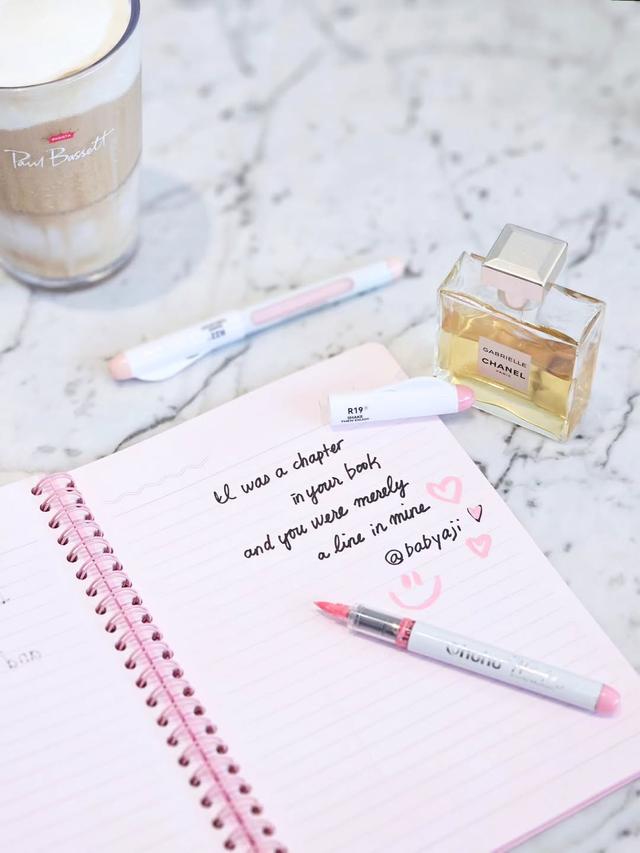 BARISTA
Paul Bassett
R22
GABRIELLE
CHANEL
PARIS
R19
SHAKE
THEN ENJOY
I was a chapter
in your book
and you were merely
a line in mine
@babyaji
Ohuhu